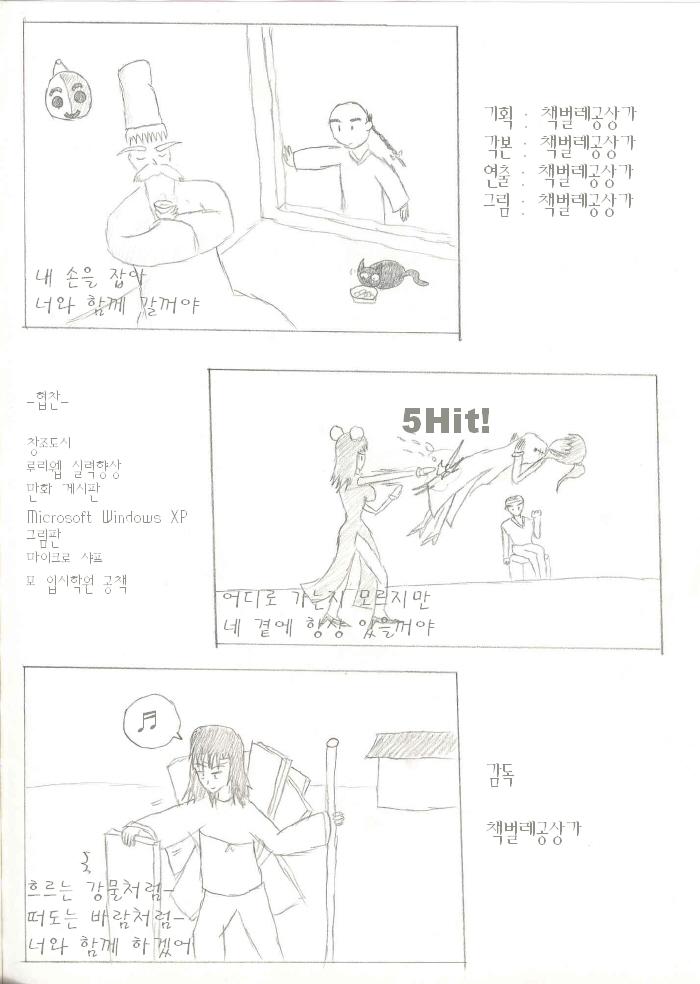 기획 : 책벌레공상가
각본 : 책벌레공상가
연출 : 책벌레공상가
그림 : 책벌레공상가
내 손을 잡아
너와 함께 갈꺼야
-협찬-
창조도시
루리웹 실력향상
만화 게시판
Microsoft Windows XP
그림판
마이크로 샤프
모 입시학원 공책
5Hit!
어디로 가는지 모르지만
네 곁에 항상 있을꺼야
감독
책벌레공상가
흐르는 강물처럼~
떠도는 바람처럼~
너와 함께 하겠어